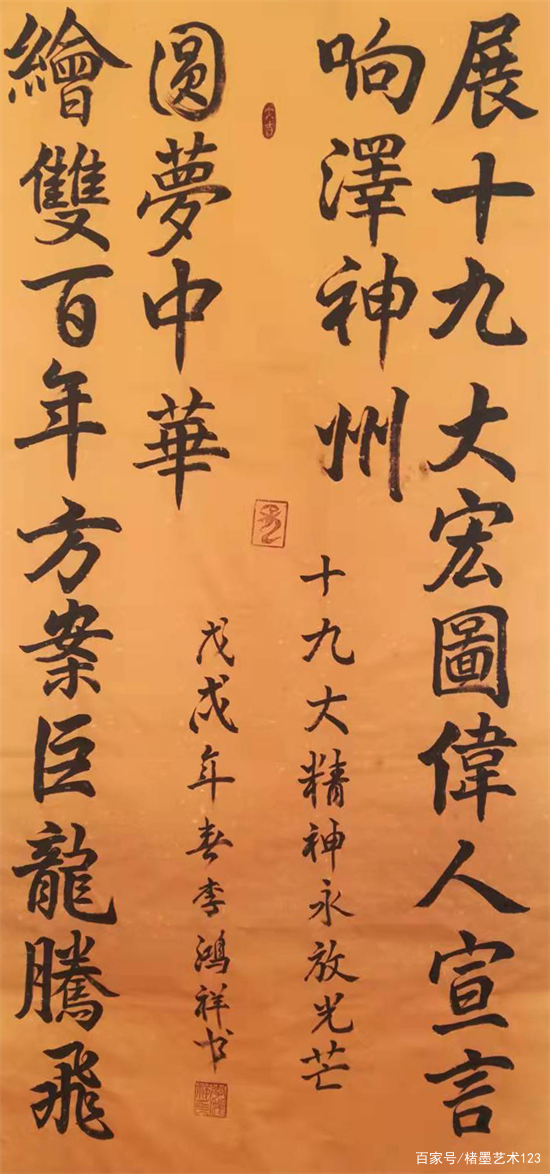 展十九大宏圖偉人宣言
响澤神州
十九大精神永放光芒
繪雙百年方案巨龍騰飛
圓夢中華
戊戌年春李鴻祥书
百家号/楮墨艺术123